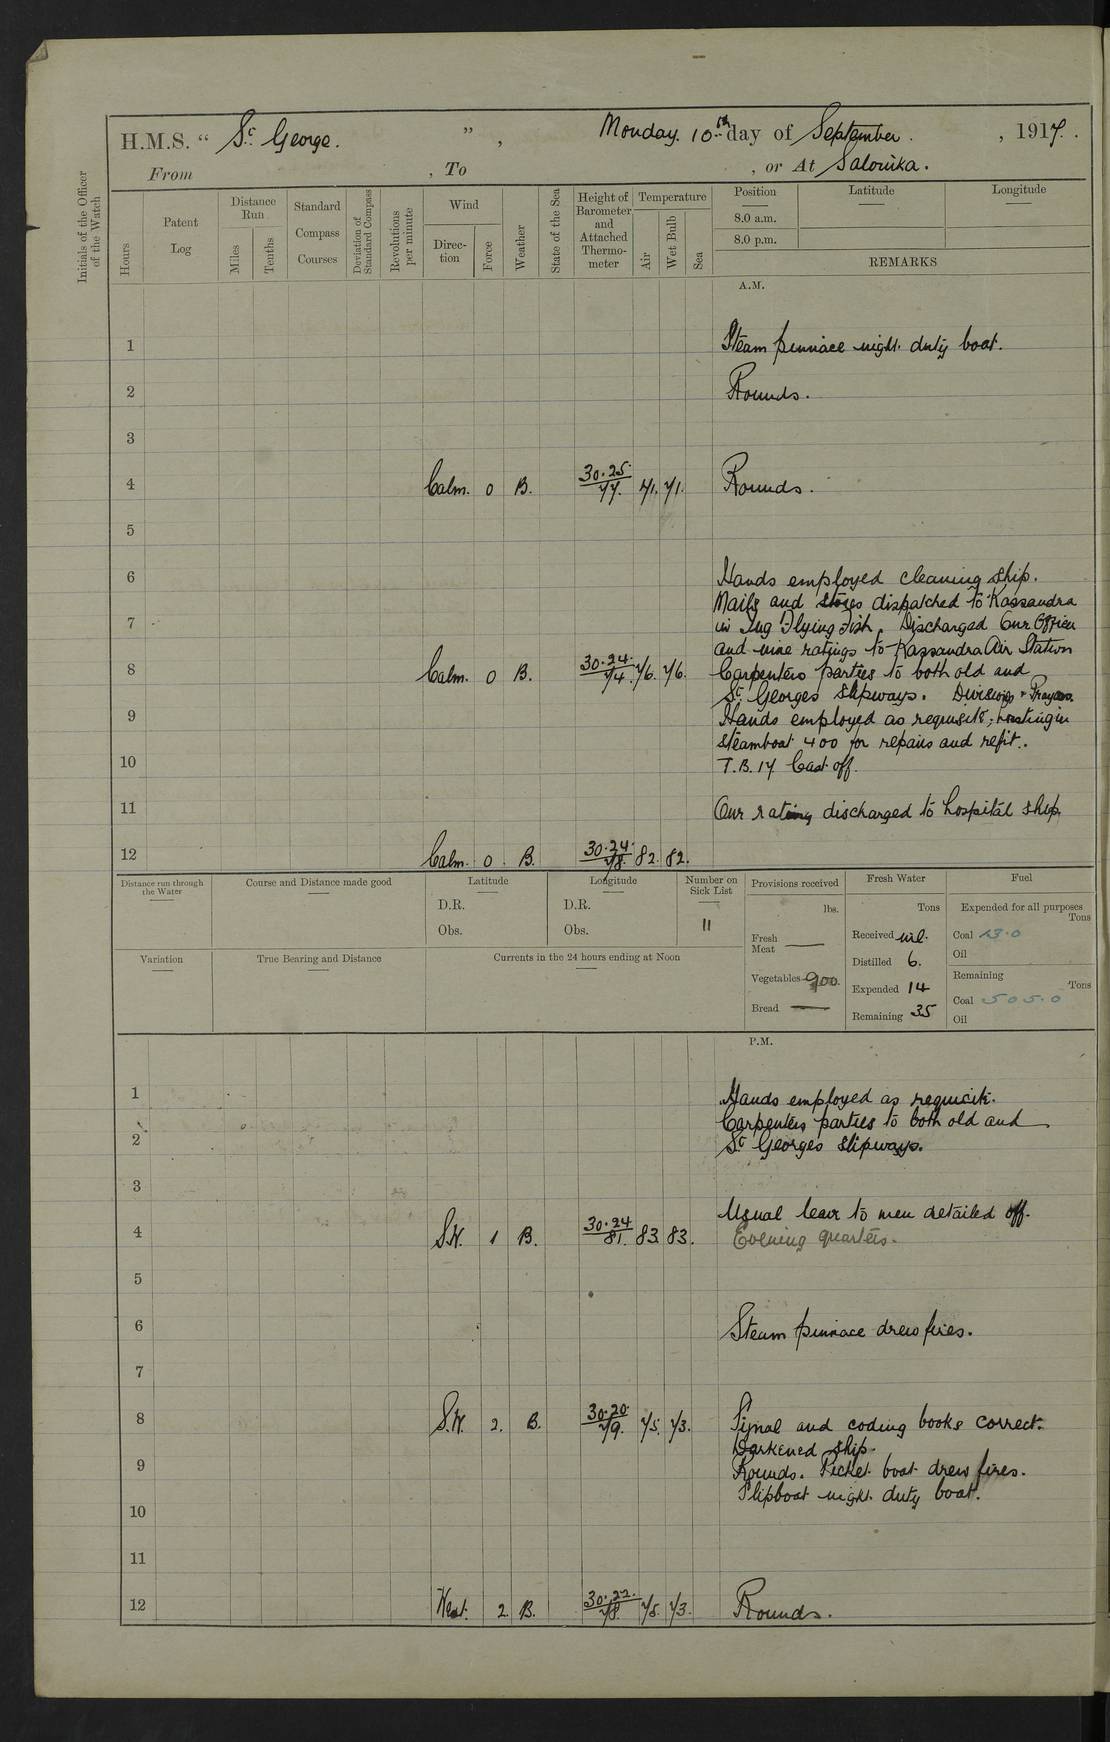 H.M.S. “ St George. ” , Monday. 10th day of September. , 1917.
From , To , or At Salonika.
Initials of the Officer of the Watch
Hours
Patent Log
Distance Run
Miles
Tenths
Standard Compass Courses
Deviation of Standard Compass
Revolutions per minute
Wind
Direction
Force
Weather
State of the Sea
Height of Barometer and Attached Thermometer
Temperature
Air
Wet Bulb
Sea
Position
8.0 a.m.
8.0 p.m.
Latitude
Longitude
REMARKS
A.M.
1 Steam pinnace night duty boat.
2 Rounds.
3
4 Calm. 0 B. 30.25/77. 71. 71. Rounds.
5
6 Hands employed cleaning ship.
Mails and stores dispatched to Kassandra
7 in Tug Flying Fish. Discharged One Officer
and nine ratings to Kassandra Air Station
8 Calm. 0 B. 30.24./74. 76. 76. Carpenters parties to both old and
St Georges slipways. Divisions & Prayers.
9 Hands employed as requisite; hoisting in
steamboat 400 for repairs and refit.
10 T.B. 17 Cast off.
11 One rating discharged to hospital ship.
12 Calm. 0. B. 30.24./78. 82. 82.
Distance run through the Water
Course and Distance made good
Latitude
D.R.
Obs.
Longitude
D.R.
Obs.
Number on Sick List
11
Provisions received
lbs.
Fresh Meat —
Vegetables 900.
Bread —
Fresh Water
Tons
Received nil.
Distilled 6.
Expended 14
Remaining 35
Fuel
Expended for all purposes
Tons
Coal 13.0
Oil
Remaining
Tons
Coal 505.0
Oil
Variation
True Bearing and Distance
Currents in the 24 hours ending at Noon
P.M.
1 Hands employed as requisite.
Carpenters parties to both old and
2 St Georges slipways.
3
Usual leave to men detailed off.
4 S.W. 1 B. 30.24/81. 83. 83. Evening quarters.
5
6 Steam pinnace drew fires.
7
8 S.W. 2. B. 30.20./79. 75. 73. Signal and coding books correct.
Darkened ship.
9 Rounds. Picket boat drew fires.
Slipboat night duty boat.
10
11
12 West. 2. B. 30.22./78. 75. 73. Rounds.